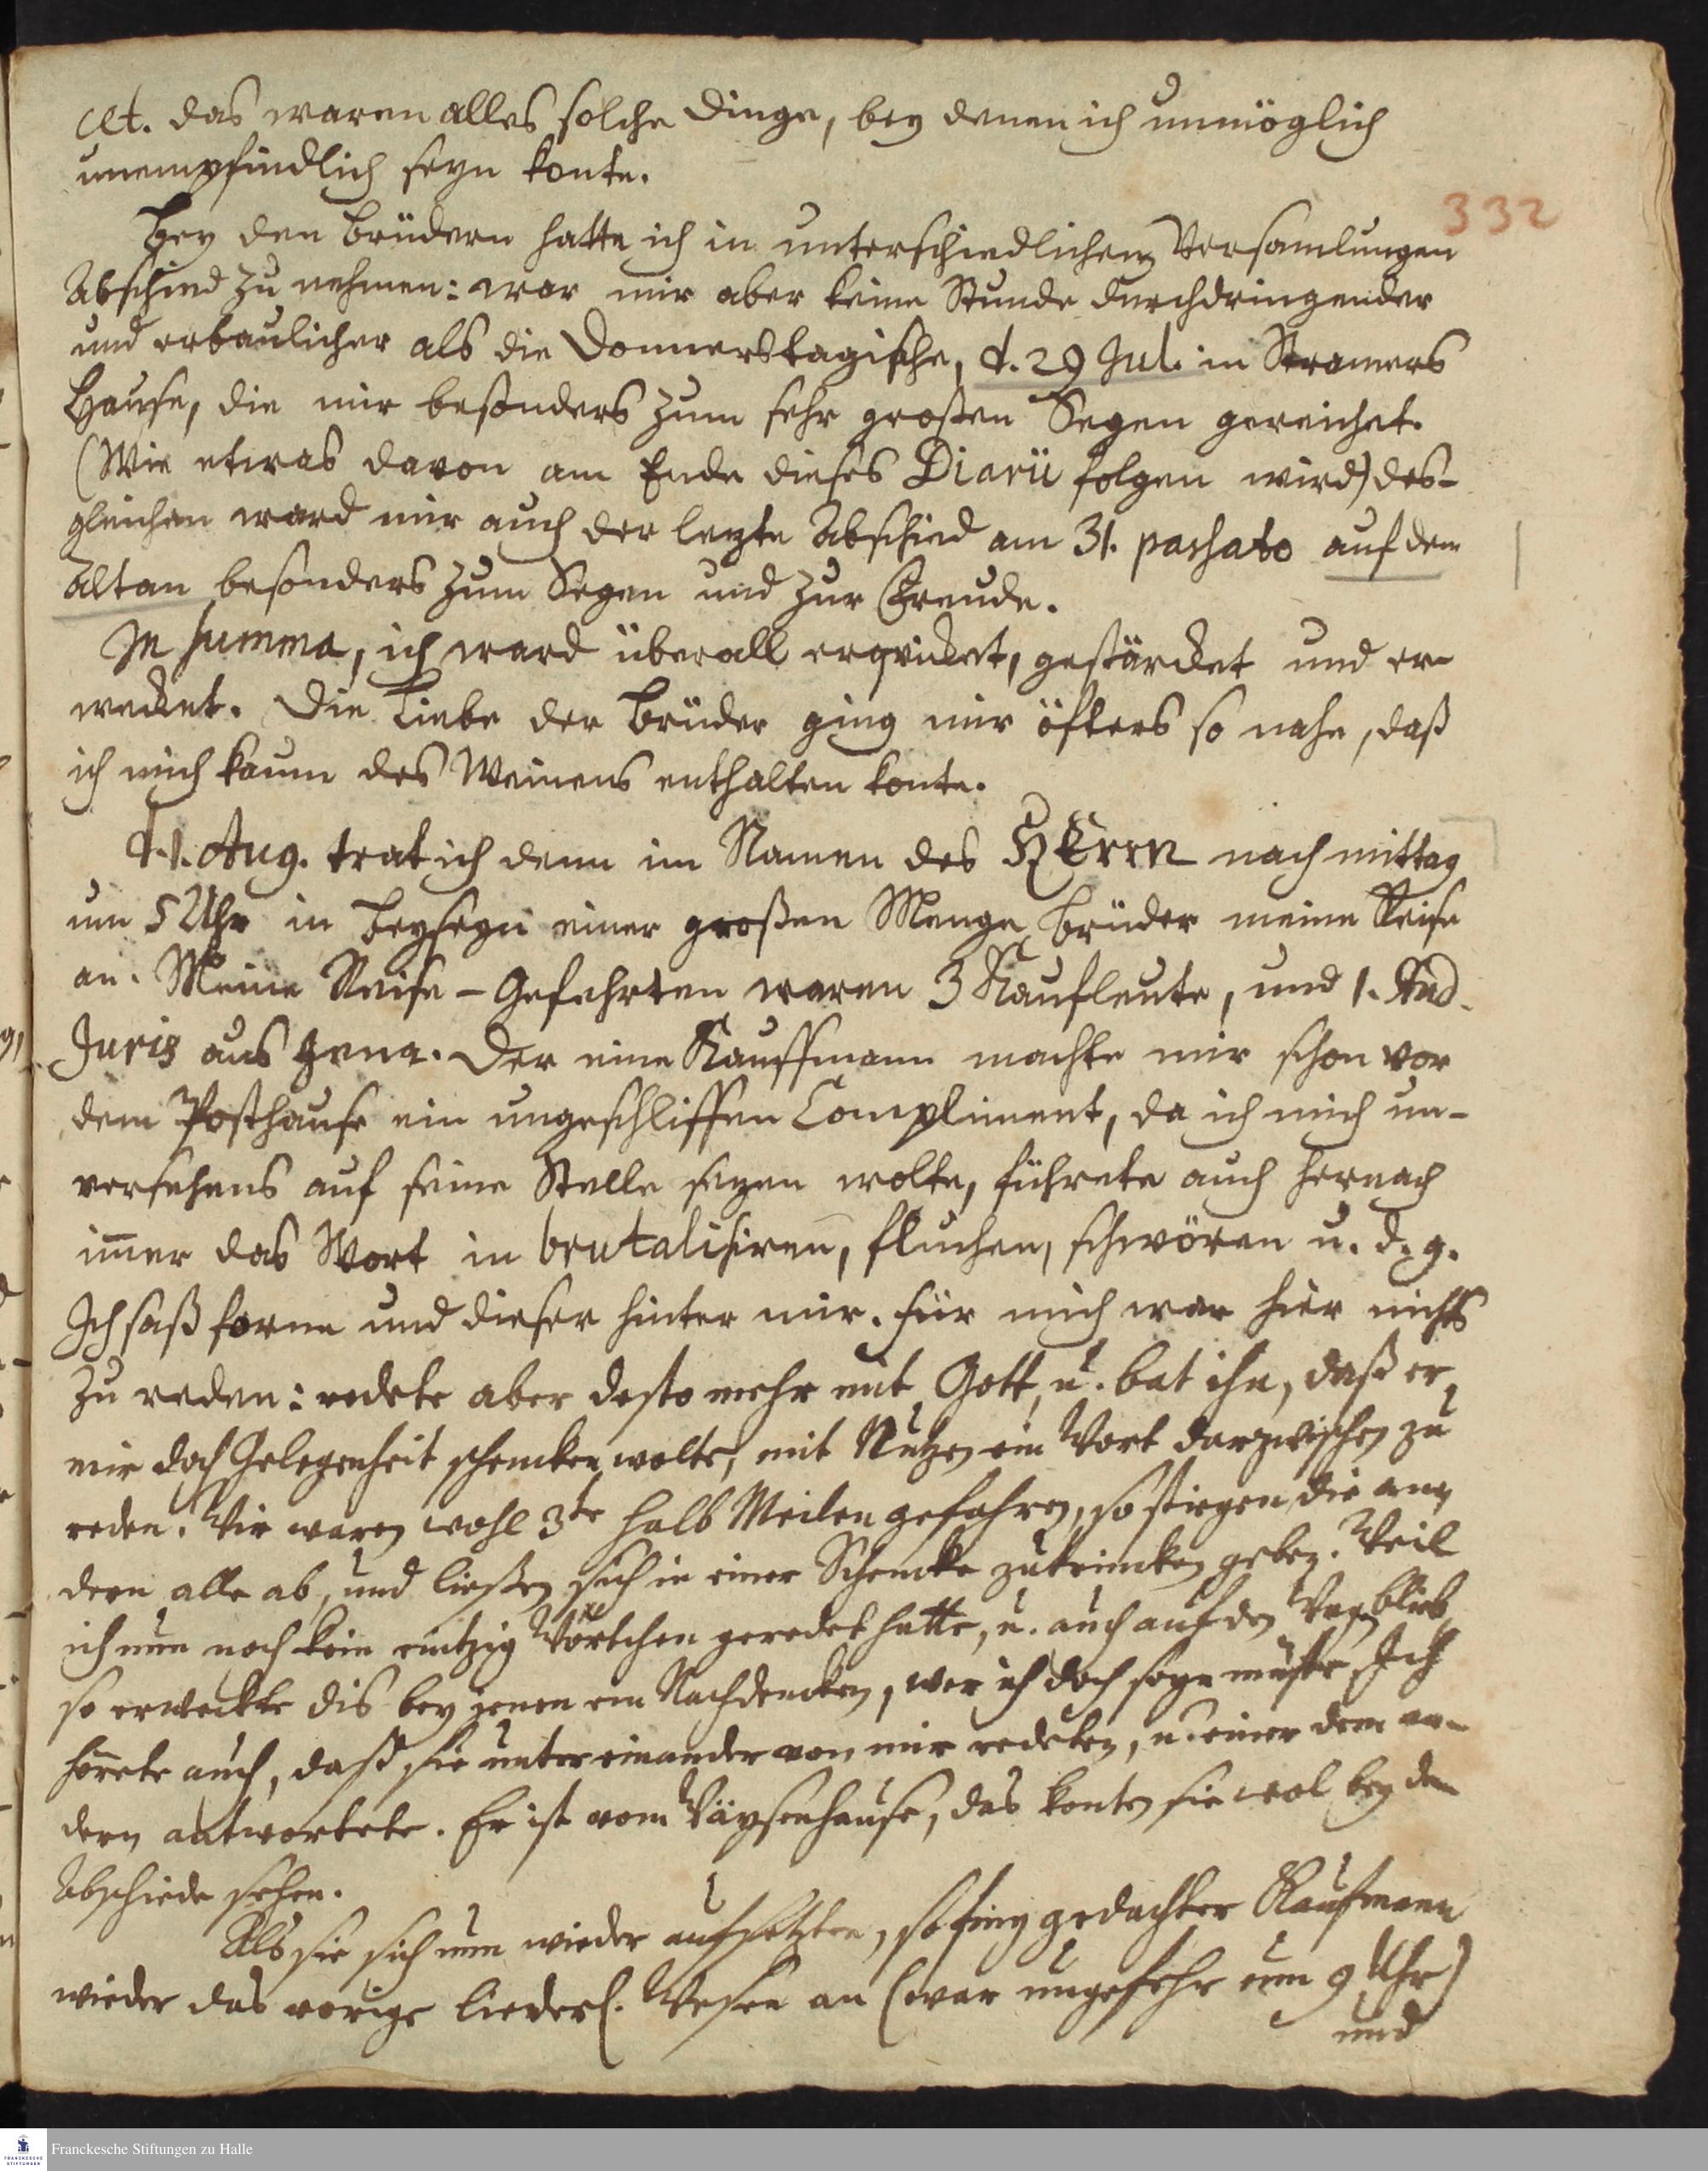 cet. das waren alles solche Dinge, bey denen ich unmöglich
unempfindlich seyn konte.
332
Bey den Brüdern hatte ich in unterschiedlichen Versamlungen
Abschied zu nehmen: war mir aber keine Stunde durchdringender
und erbaulicher als die Donnerstagische, d. 29 Jul. in Stramers
Hause, die mir besonders zum sehr großen Segen gereichet.
(Wie etwas davon am Ende dieses Diarii folgen wird) des-
gleichen ward mir auch der lezte Abschied am 31. passato auf dem
Altan besonders zum Segen und zur Freude.
In summa, ich ward überall erqvicket, gestärcket und er-
wecket. Die Liebe der Brüder ging mir öfters so nahe, daß
ich mich kaum des Weinens enthalten konte.
d. 1. Aug. trat ich denn im Namen des HErrn nach mittag
um 5 Uhr in Beyseyn einer großen Menge Brüder meine Reise
an. Meine Reise-Gefehrten waren 3 Kaufleute, und 1. Stud.
Juris aus Jena. Der eine Kauffmann machte mir schon vor
dem Posthause ein ungeschliffen Compliment, da ich mich un-
versehens auf seine Stelle sezen wolte, führete auch hernach
im̄er das Wort in brutalisiren, fluchen, schwören u. d. g.
Ich saß forne und dieser hinter mir. Für mich war hier nichts
zu reden: redete aber desto mehr mit Gott, u. bat ihn, daß er
mir doch Gelegenheit schencken wolte, mit Nutzen ein Wort darzwischen zu
reden. Wir waren wohl 3te halb Meilen gefahren, so stiegen die an-
dern alle ab, und ließen sich in einer Schencke zu trincken geben. Weil
ich nun noch kein eintzig Wörtchen geredet hatte, u. auch auf den Wagen blieb
so erweckte dis bey jenen ein Nachdencken, wer ich doch seyn müste. Ich
hörete auch, daß sie unter einander von mir redeten, u. einer dem an-
dern antwortete. Er ist vom Wäysenhause, das konten sie wol bey dem
Abschiede sehen.
Als sie sich nun wieder aufsetzten, so fing gedachter Kaufmann
wieder das vorige liederl. Wesen an (war ungefehr um 9 Uhr)
und
Franckesche Stiftungen zu Halle